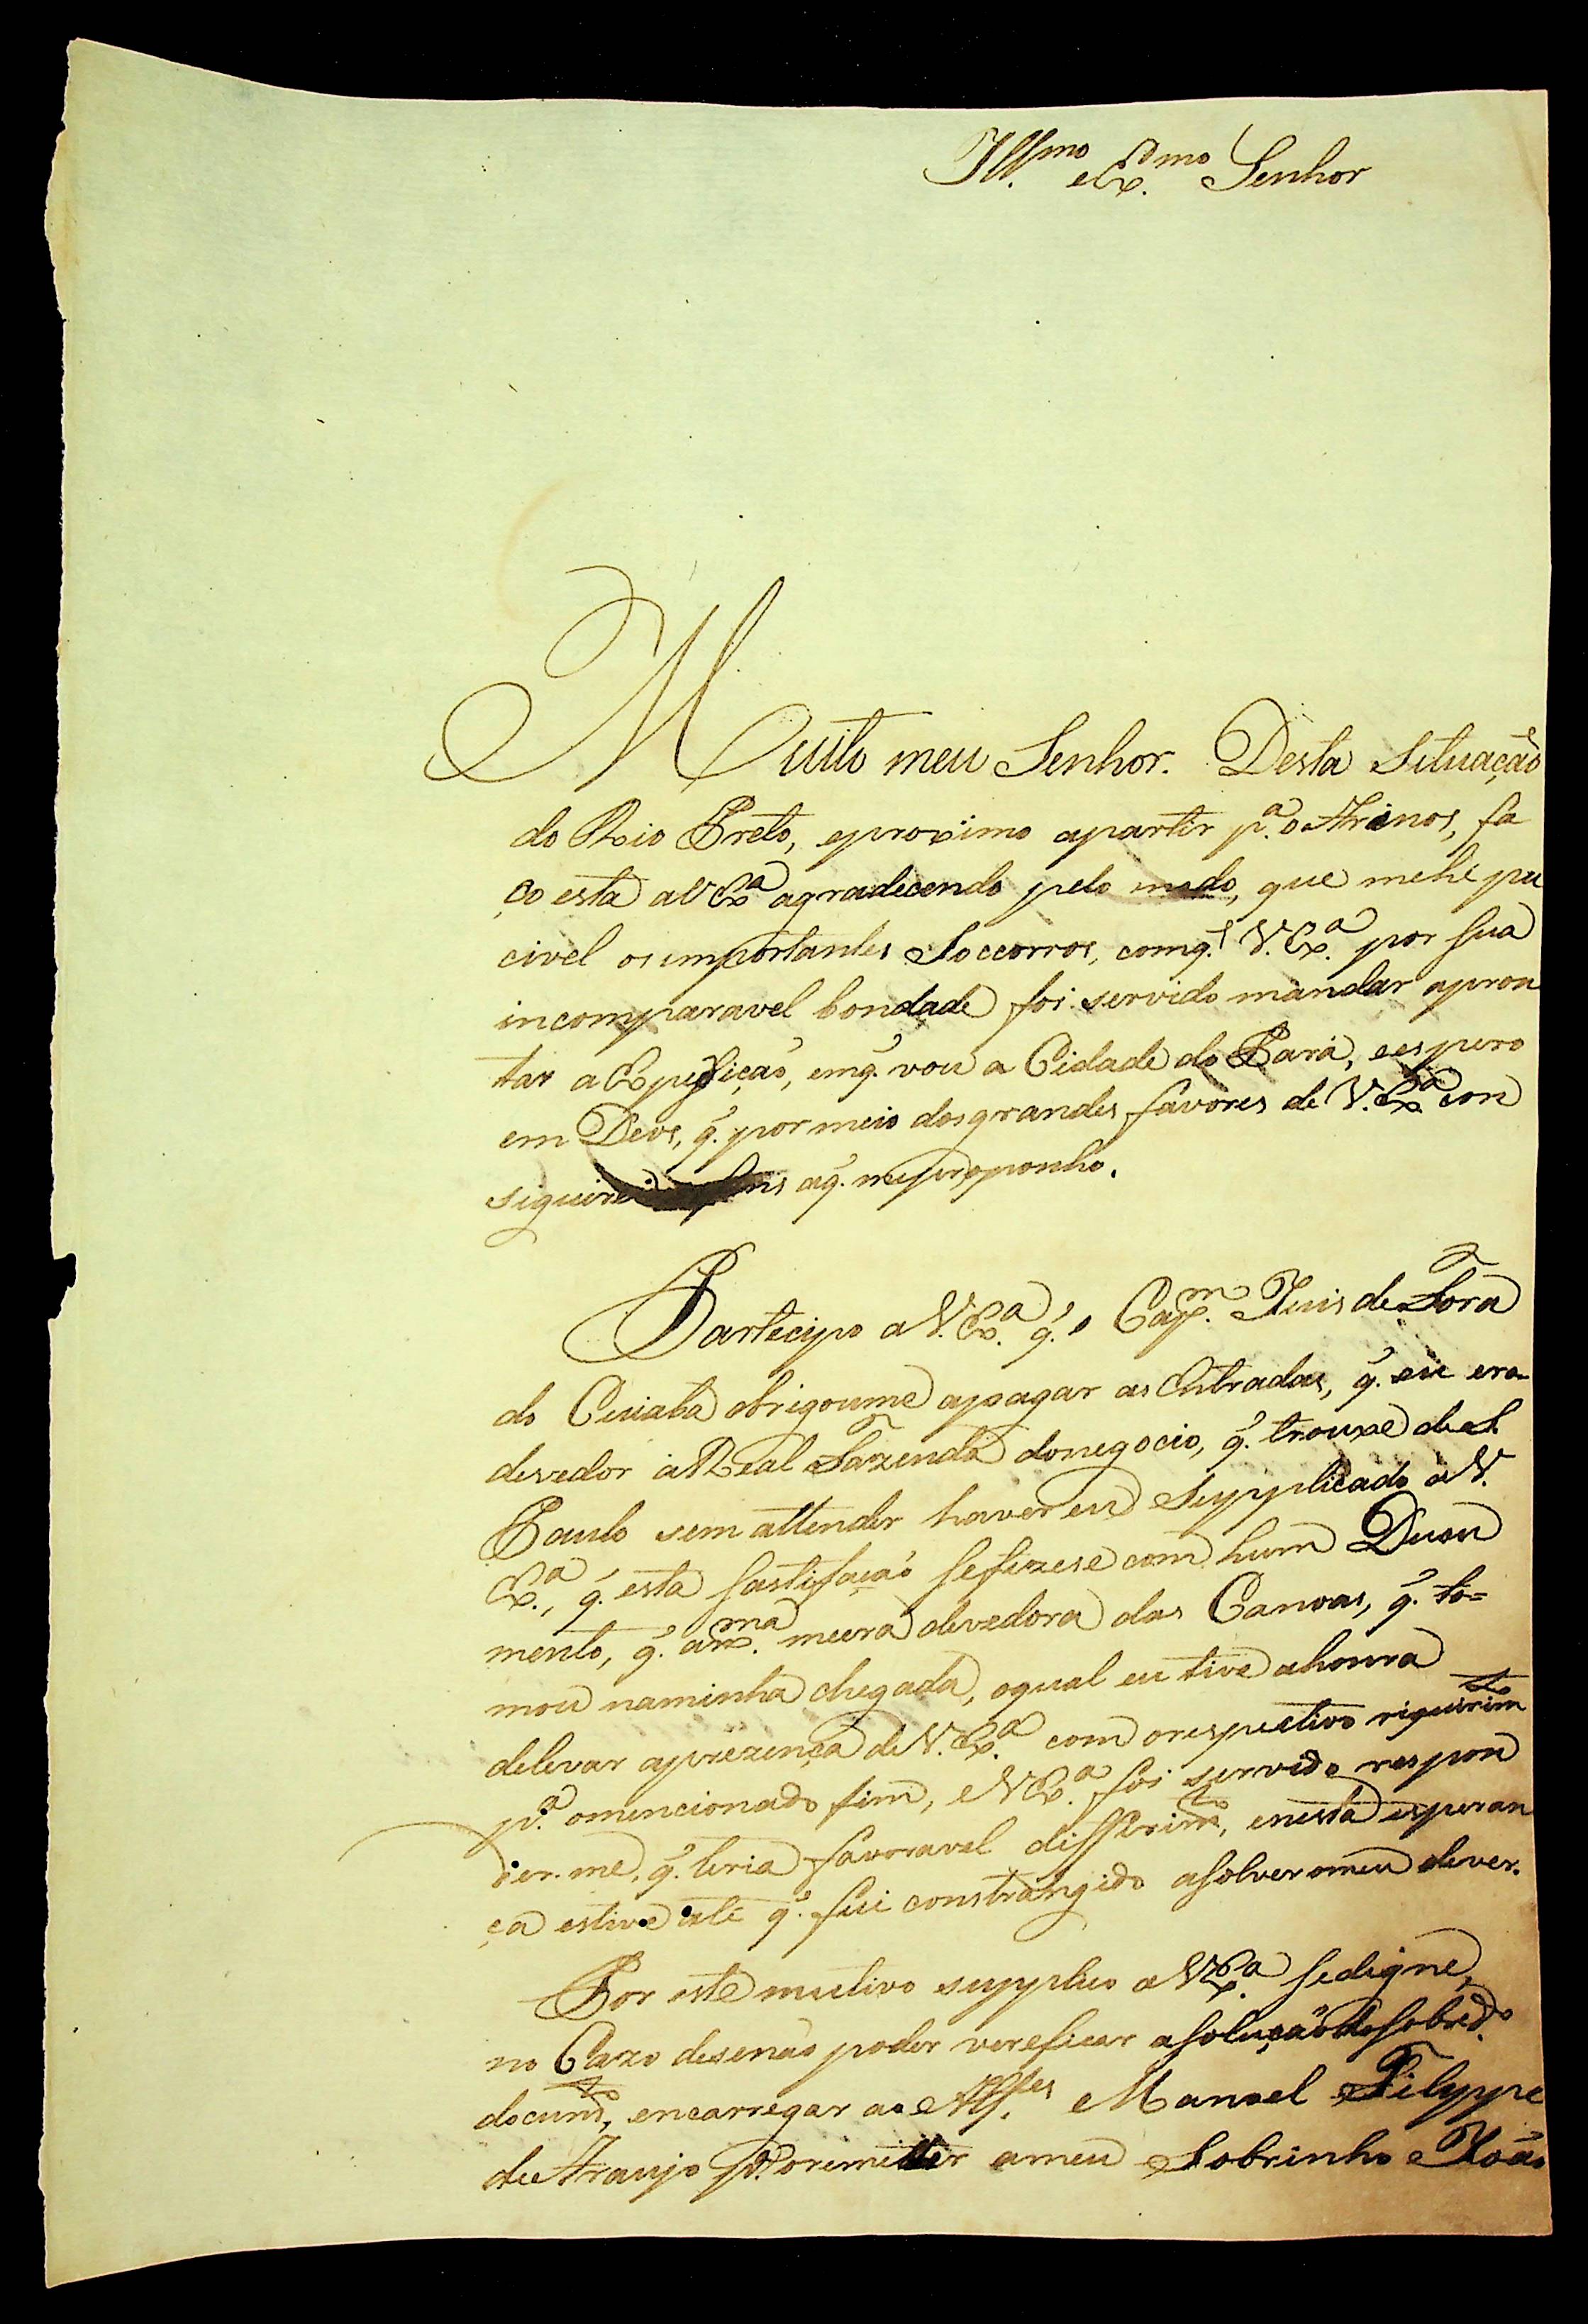 Ill.mo e Ex.mo Senhor
Muito meu Senhor. Desta Situação
do Rio Preto, eproximo apartir p.a o Arinos, fa
ço esta aV Ex.a agradecendo pelo modo, que mehé pu
civel os importantes Soccorros, comq.' V. Ex.a por sua
incomparavel bondade foi servido mandar apron
tar a Expedição, emq.' vou a Cidade do Pará, eespero
em Deos, q.' por meio dosgrandes favores de V. Ex.a con
siguirei fins aq.' mepreponho.
Partecipo aV. Ex.a q.' o Cap.m Juis de Fora
do Cuiaba obrigoume apagar as Entradas, q.' eu era
devedor áReal Fazenda donegocio, q.' trouxe deS.
Paulo sem attender haver eu Supplicado aV.
Ex.a, q.' esta sastifação sefizese com hum Duou
mento, q.' am.ma meera devedora das Canoas, q.' to=
mou naminha chegada, oqual eu tive ahonra
delevar aprezença deV. Ex.a com orespectivo riquirim.to
p.a omencionado fim, eV Ex.a foi servido respon
der.me, q.' teria favoravel differim.to, enesta esperan
ça estive até q.' fui constrangido asolver omeu dever.
Por este mutivo supplico aV Ex.a sedigne,
no Cazo desenão poder vereficar asolução do sobred.o
docum.to, encarregar ao Alf.es Manoel Filippe
de Araujo p.a oremitter ameu Sobrinho João